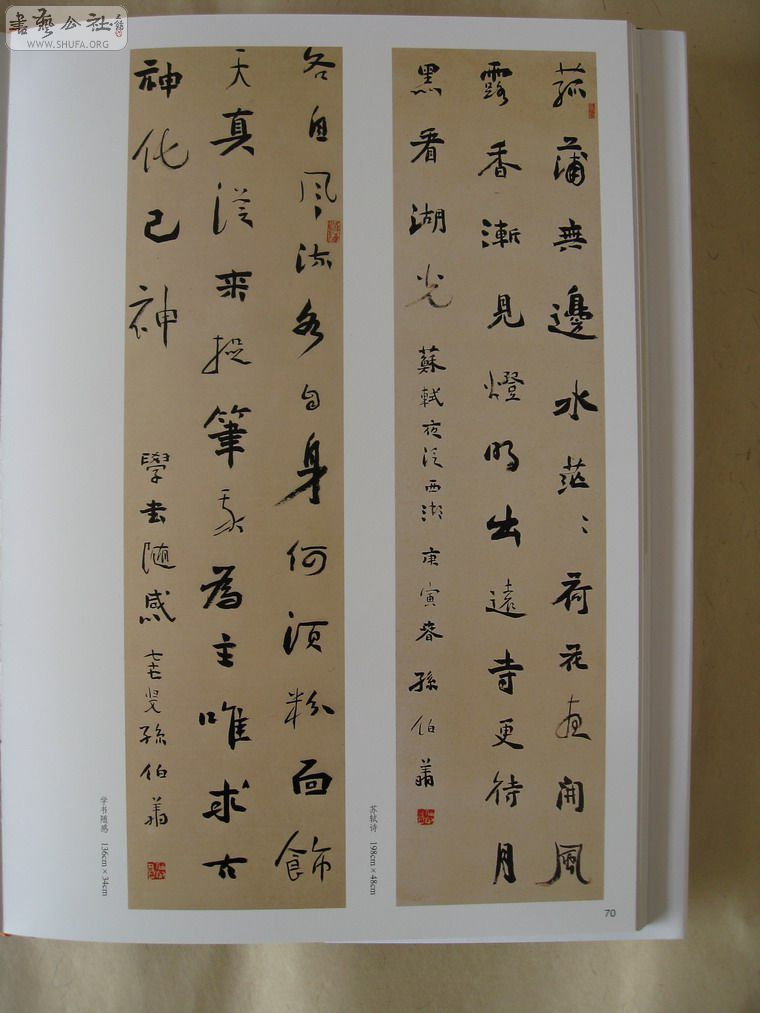 書藝公社
WWW.SHUFA.ORG
菰蒲無邊水茫〻荷花夜開風
露香漸見燈明出遠寺更待月
黑看湖光 蘇軾夜泛西湖 庚寅春 孫伯翔
各自風流各自身何須粉面飾
天真從來捉筆我為主唯求古
神化己神 學書随感 叟孫伯翔
苏轼诗 198cm×48cm
学书随感 136cm×34cm
70